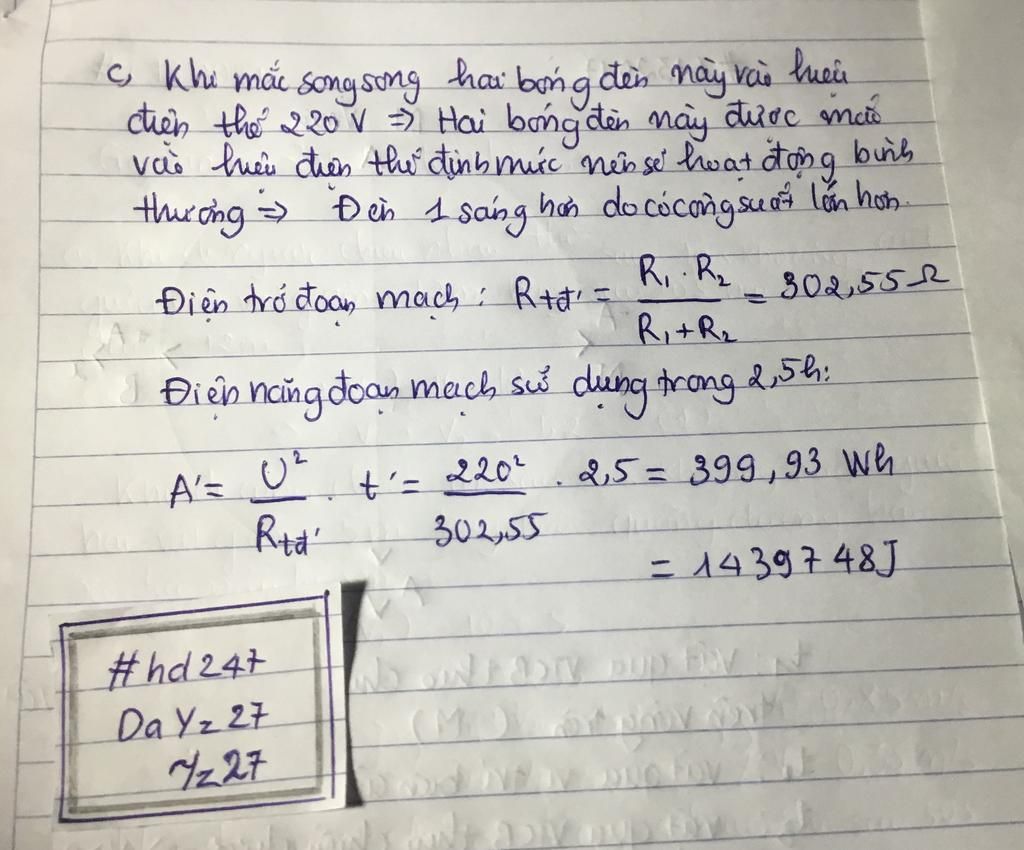 c, Khi mắc song song hai bóng đèn này vào hiệu
điện thế 220 V => Hai bóng đèn này được mắc
vào hiệu điện thế định mức nên sẽ hoạt động bình
thường => Đèn 1 sáng hơn do có công suất lớn hơn.
Điện trở đoạn mạch : Rtđ' = R₁ . R₂ / R₁ + R₂ = 302,55 Ω
Điện năng đoạn mạch sử dụng trong 2,5h:
A' = U² / Rtđ' . t' = 220² / 302,55 . 2,5 = 399,93 Wh
= 1439748J
#hd247
DaYz27
Yz27